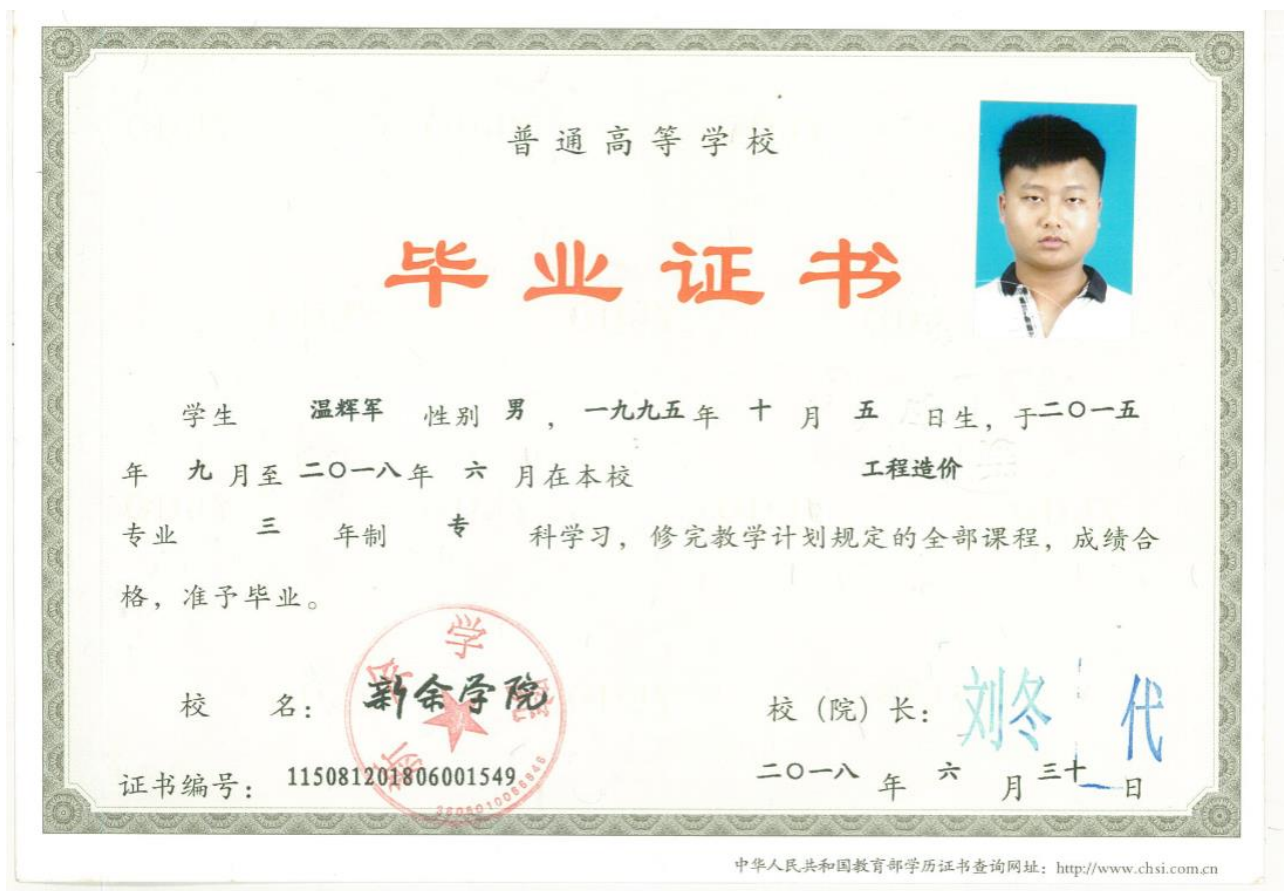 普通高等学校
毕业证书
学生 温辉军 性别 男 , 一九九五 年 十 月 五 日生, 于二〇一五
年 九 月至 二〇一八 年 六 月在本校 工程造价
专业 三 年制 专 科学习, 修完教学计划规定的全部课程, 成绩合
格, 准予毕业。
校 名: 新余学院
校 (院) 长: 刘冬
证书编号: 115081201806001549
二〇一八 年 六 月 三十 日
中华人民共和国教育部学历证书查询网址: http://www.chsi.com.cn